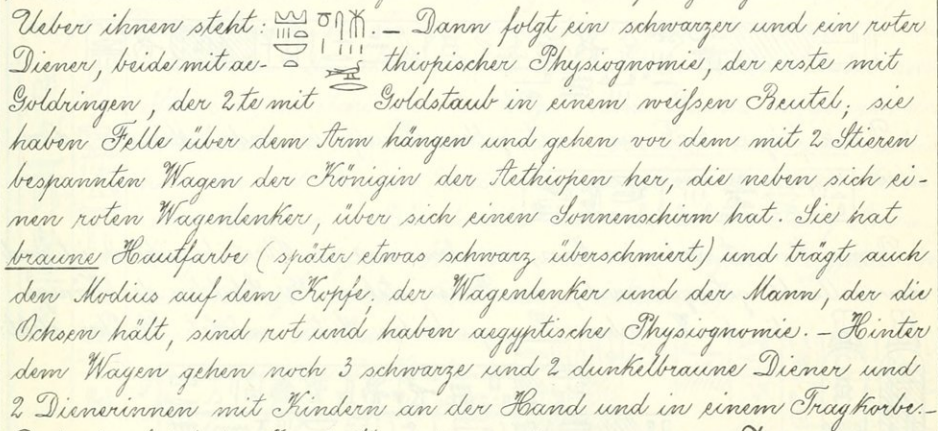 Ueber ihnen steht: . – Dann folgt ein schwarzer und ein roter
Diener, beide mit ae- thiopischer Physiognomie, der erste mit
Goldringen, der 2te mit Goldstaub in einem weißen Beutel; sie
haben Felle über dem Arm hängen und gehen vor dem mit 2 Stieren
bespannten Wagen der Königin der Aethiopen her, die neben sich ei-
nen roten Wagenlenker, über sich einen Sonnenschirm hat. Sie hat
braune Hautfarbe (später etwas schwarz überschmiert) und trägt auch
den Modius auf dem Kopfe; der Wagenlenker und der Mann, der die
Ochsen hält, sind rot und haben aegyptische Physiognomie. – Hinter
dem Wagen gehen noch 3 schwarze und 2 dunkelbraune Diener und
2 Dienerinnen mit Kindern an der Hand und in einem Tragkorbe. –